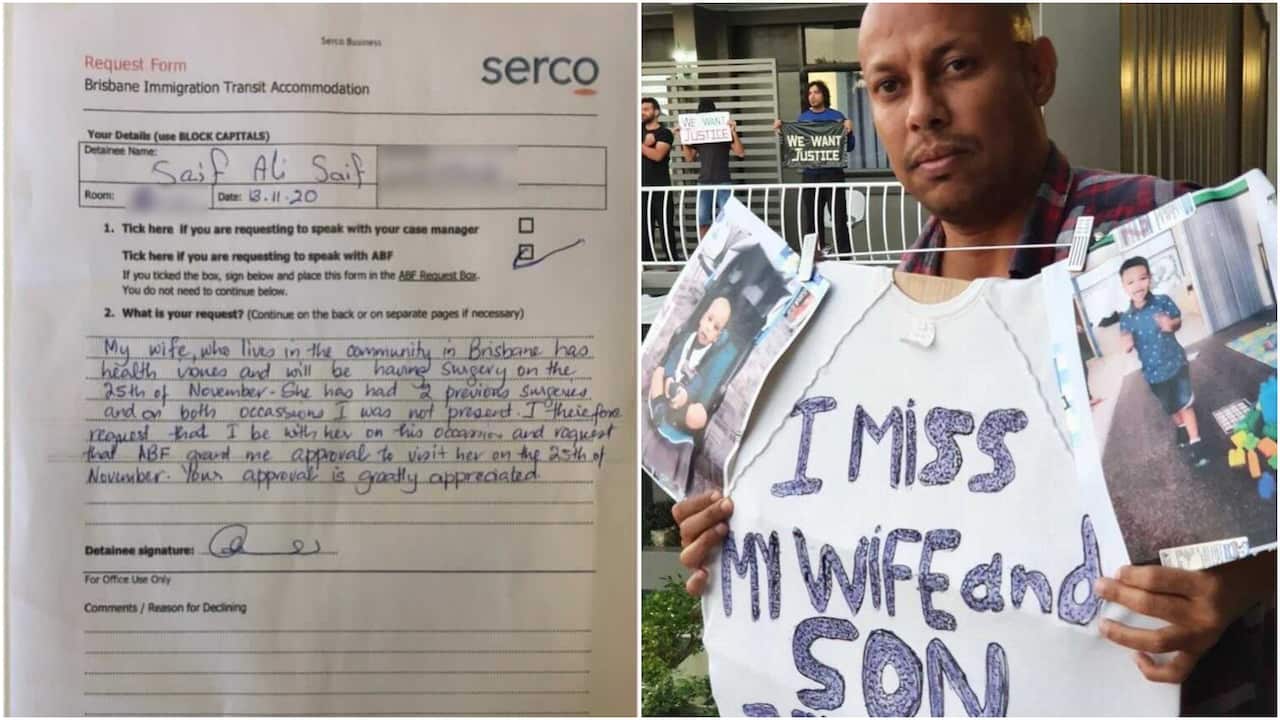 Serco Business
Request Form
serco
Brisbane Immigration Transit Accommodation
Your Details (use BLOCK CAPITALS)
Detainee Name: Saif Ali Saif
Room: Date: 13.11.20
1. Tick here if you are requesting to speak with your case manager
Tick here if you are requesting to speak with ABF
If you ticked the box, sign below and place this form in the ABF Request Box.
You do not need to continue below.
2. What is your request? (Continue on the back or on separate pages if necessary)
My wife, who lives in the community in Brisbane has
health issues and will be having surgery on the
25th of November. She has had 2 previous surgeries
and on both occassions I was not present. I therefore
request that I be with her on this occasion and request
that ABF grant me approval to visit her on the 25th of
November. Your approval is greatly appreciated.
Detainee signature:
For Office Use Only
Comments / Reason for Declining
WE WANT
JUSTICE
WE WANT
JUSTICE
I MISS
MY WIFE and
SON